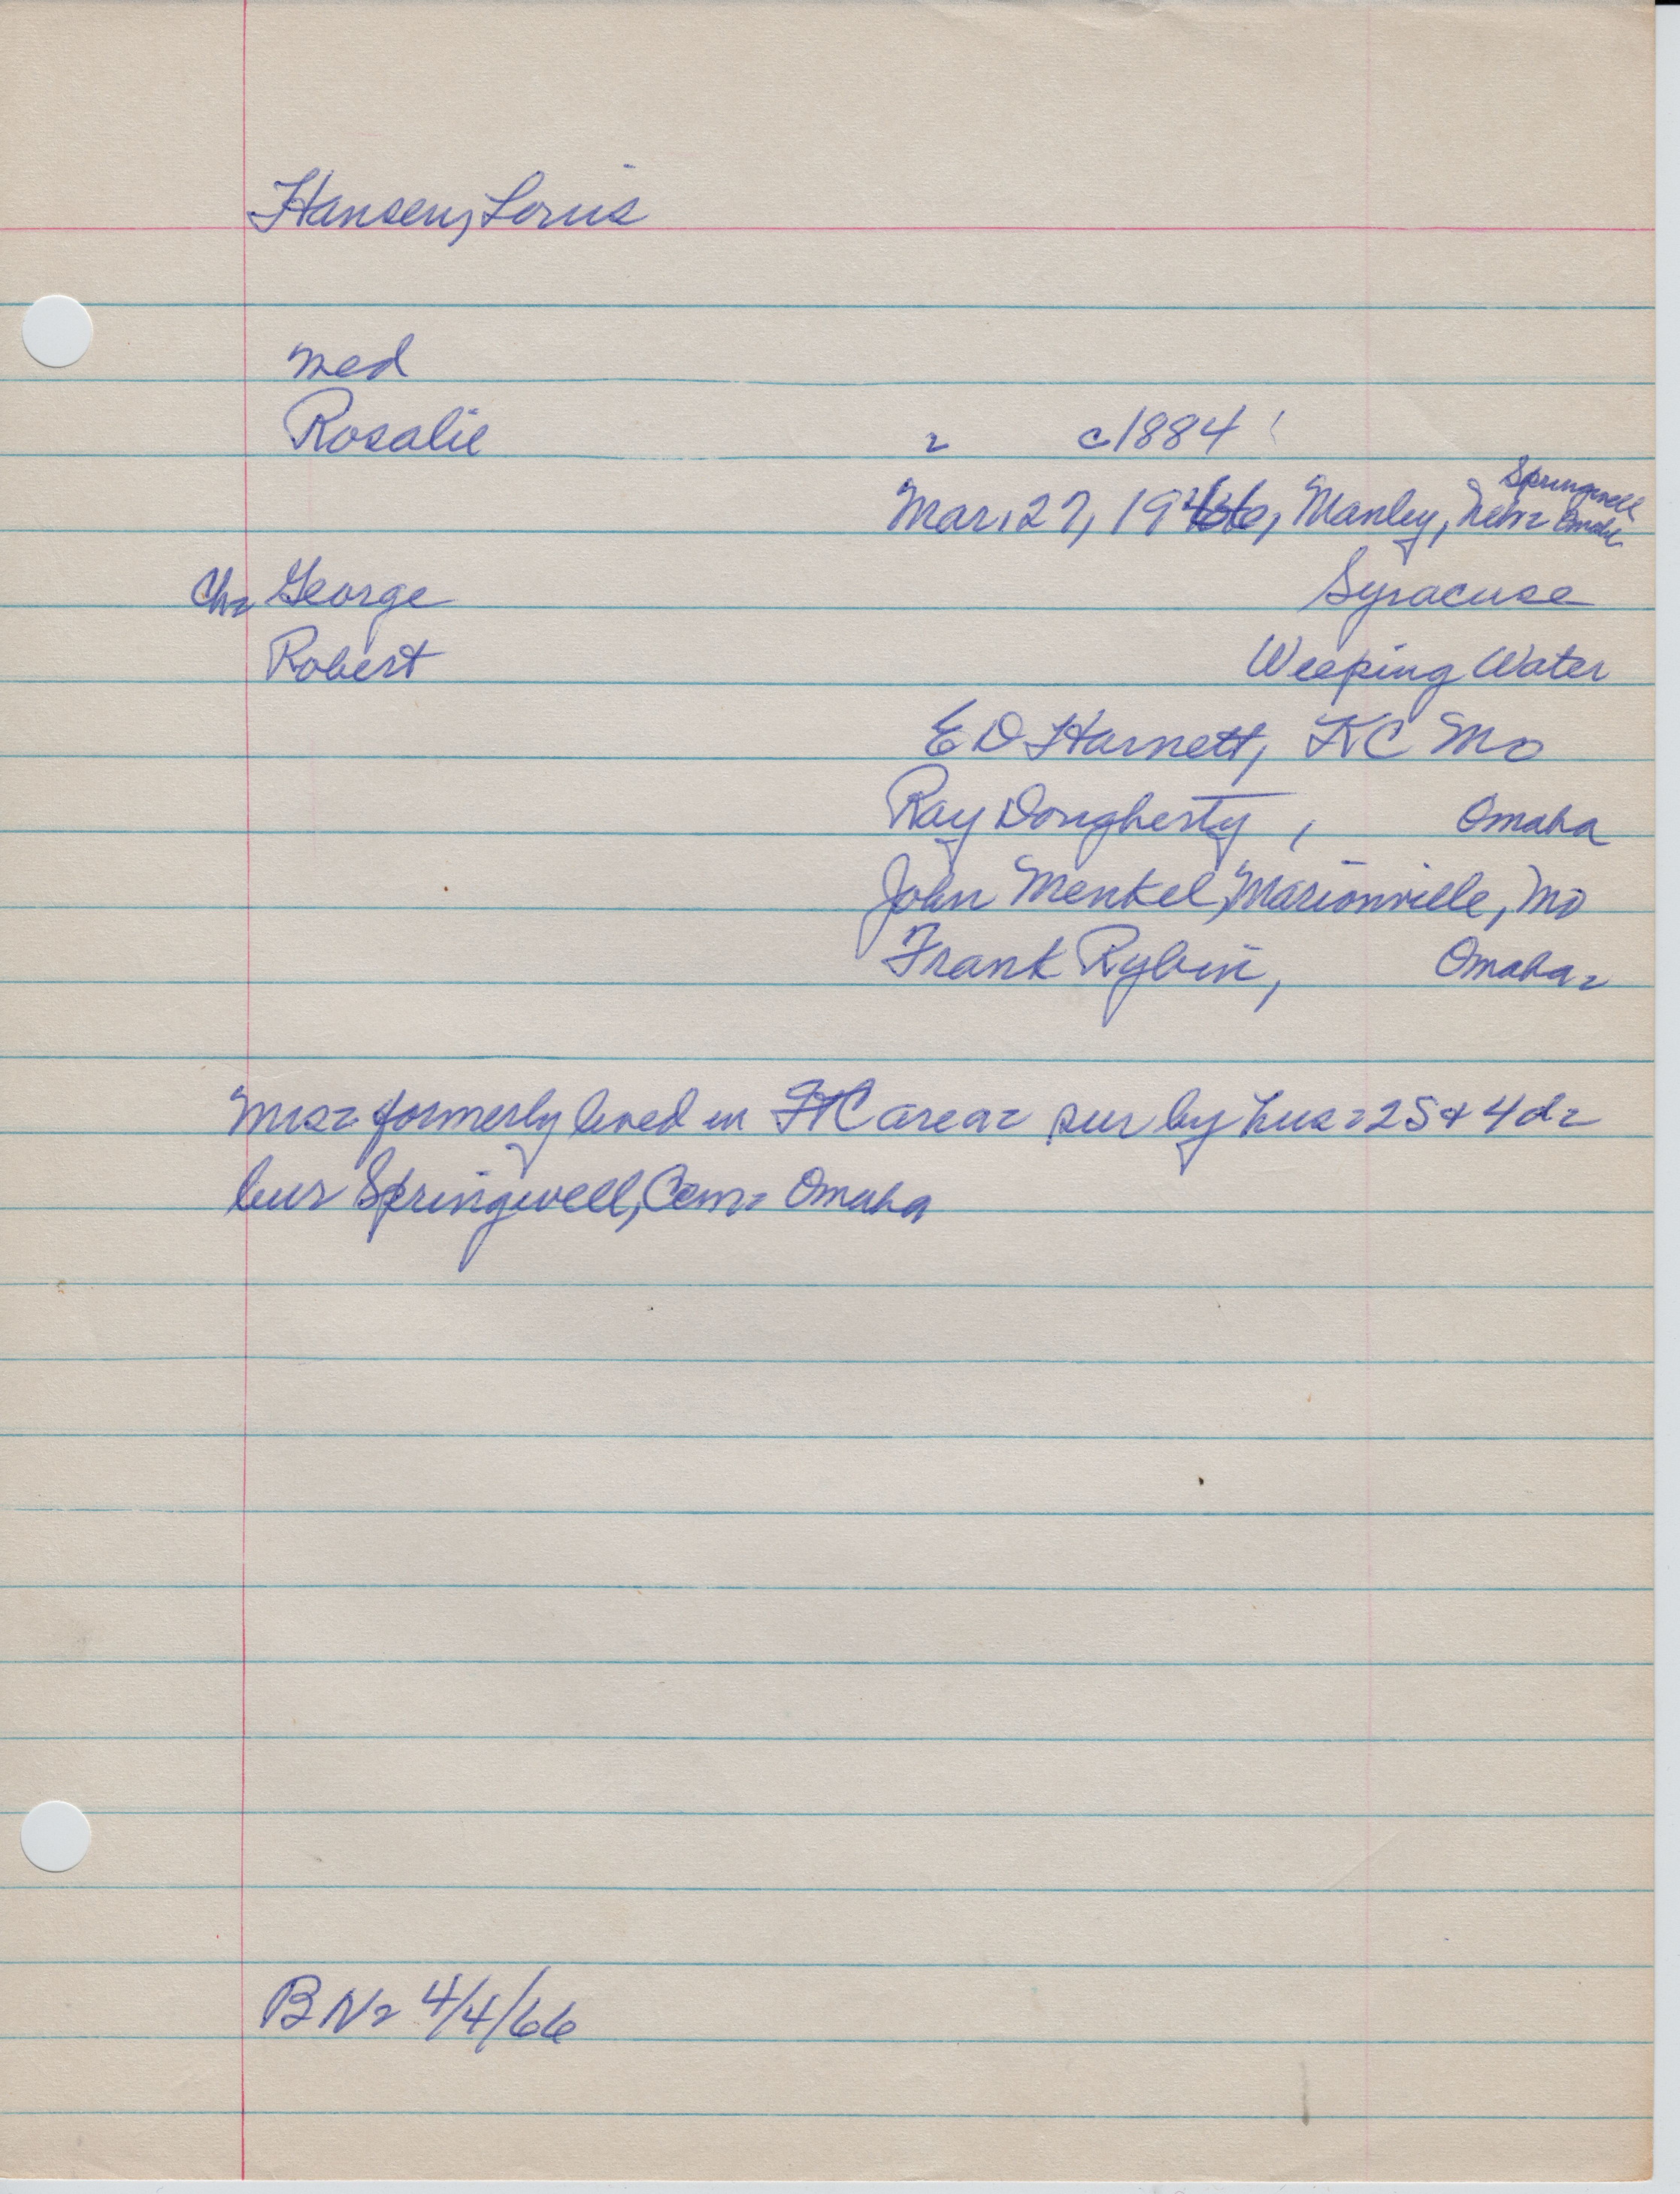 Hansen, Louis
med
Rosalie - c1884
Mar. 27, 1966, Manley, Neb- Springwell Omaha
Ch- George Syracuse
Robert Weeping Water
E D Harnett, KC Mo
Ray Dougherty, Omaha
John Menkel, Marionville, Mo
Frank Rybin, Omaha-
Mrs- formerly lived in area- sur by hus- 2S & 4d-
bur Springwell, Cem- Omaha
BN- 4/4/66